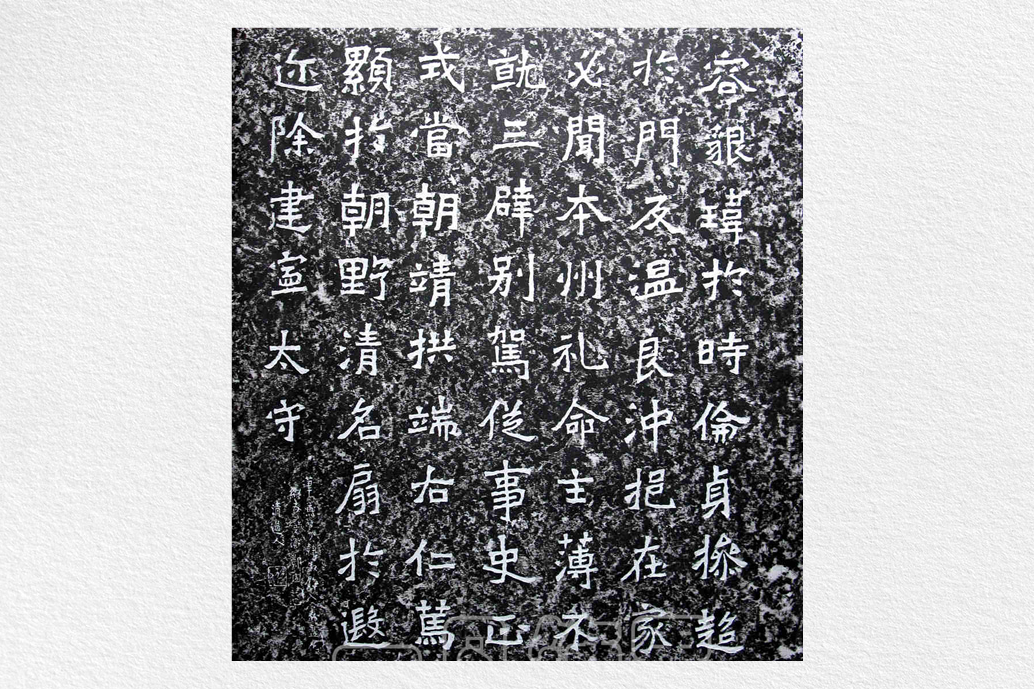 容貌瑋於時倫貞操超
於門友温良沖挹在家
必聞本州礼命主薄不
就三辟别駕從事史正
式當朝靖拱端右仁篤
顯於朝野清名扇於遐
迩除建寧太守